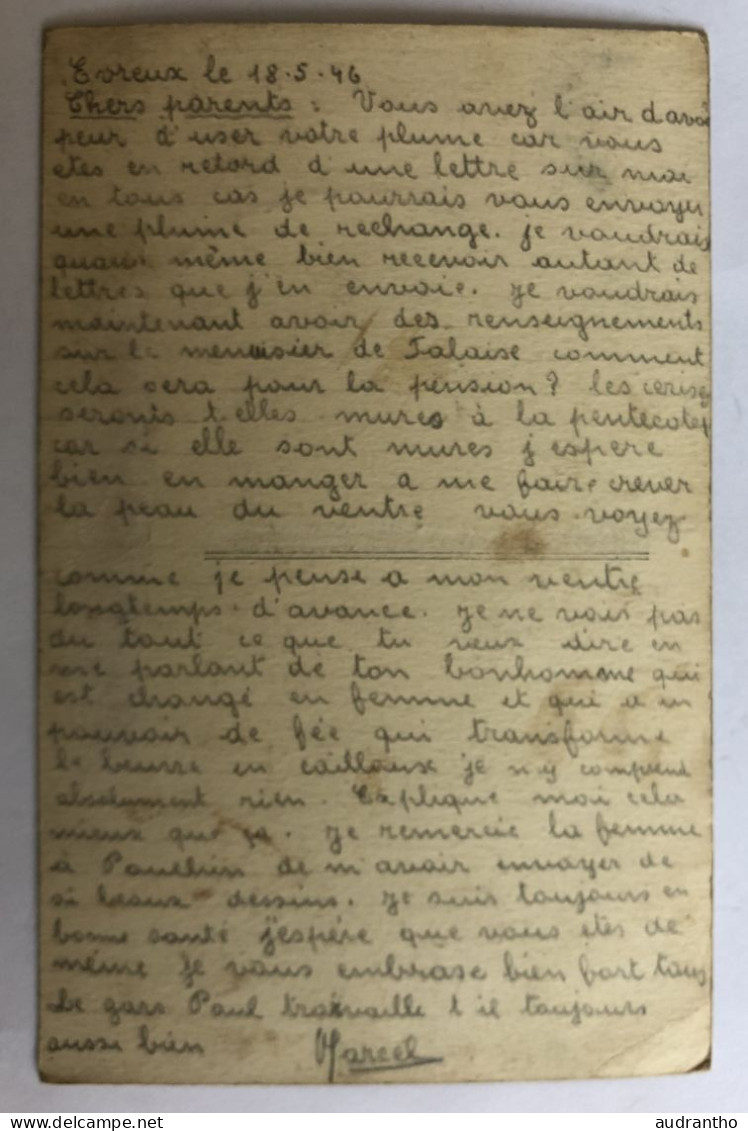 Evreux le 18.5.46
Chers parents : Vous avez l'air d'avoi
peur d'user votre plume car vous
etes en retard d'une lettre sur moi
en tous cas je pourrais vous envoyer
une plume de rechange. je voudrais
quand même bien recevoir autant de
lettres que j'en envoie. Je voudrais
maintenant avoir des renseignements
sur le menuisier de Falaise comment
cela sera pour la pension? les cerises
seronts t elles mures à la pentecote
car si elle sont mures j'espere
bien en manger a me faire crever
la peau du ventre vous voyez
comme je pense a mon ventre
longtemps d'avance. Je ne vois pas
du tout ce que tu veux dire en
me parlant de ton bonhomme qui
est changé en femme et qui a un
pouvoir de fée qui transforme
le beurre en cailloux je n'y comprend
absolument rien. Explique moi cela
mieux que ça. Je remercie la femme
à de m'avoir envoyer de
si beaux dessins. Je suis toujours en
bonne santé j'espére que vous etes de
même Je vous embrase bien fort tous
Le gars Paul travaille t'il toujours
aussi bien Marcel
audrantho